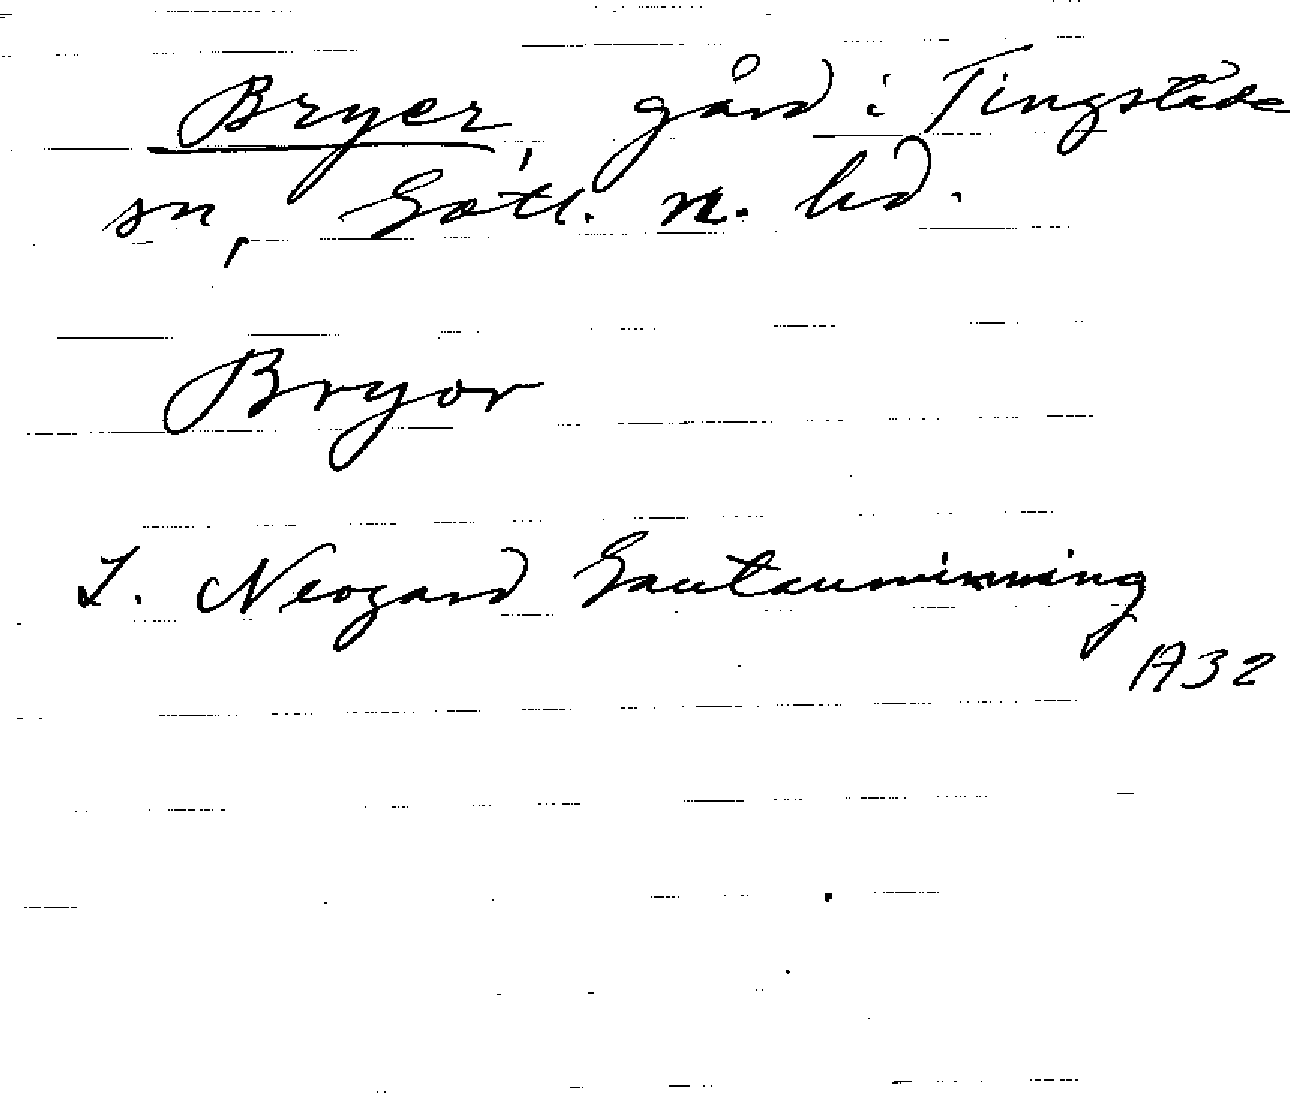 Bryer, gård i Tingstäde
sn, Gotl. n. hd.
Bryor
L. Neogard Gautauminning
A32